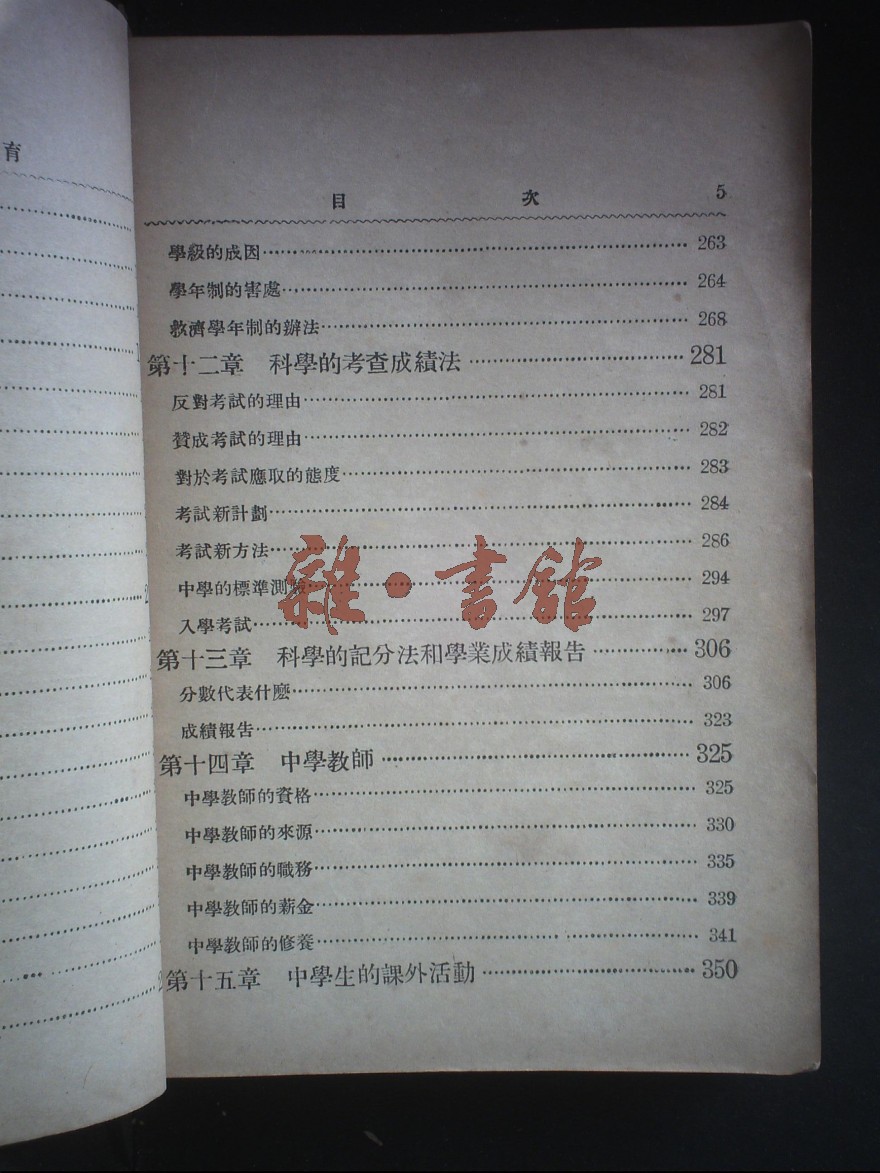 育
目 次 5
學級的成因 263
學年制的害處 264
救濟學年制的辦法 268
第十二章 科學的考查成績法 281
反對考試的理由 281
贊成考試的理由 282
對於考試應取的態度 283
考試新計劃 284
考試新方法 286
中學的標準測驗 294
雜·書館
入學考試 297
第十三章 科學的記分法和學業成績報告 306
分數代表什麽 306
成績報告 323
第十四章 中學教師 325
中學教師的資格 325
中學教師的來源 330
中學教師的職務 335
中學教師的薪金 339
中學教師的修養 341
第十五章 中學生的課外活動 350